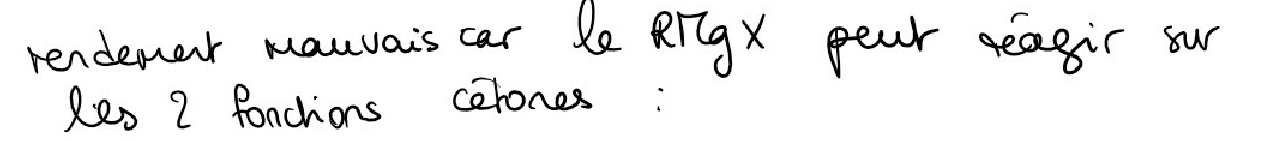 rendement mauvais car le RMgX peut réagir sur
les 2 fonctions cétones :